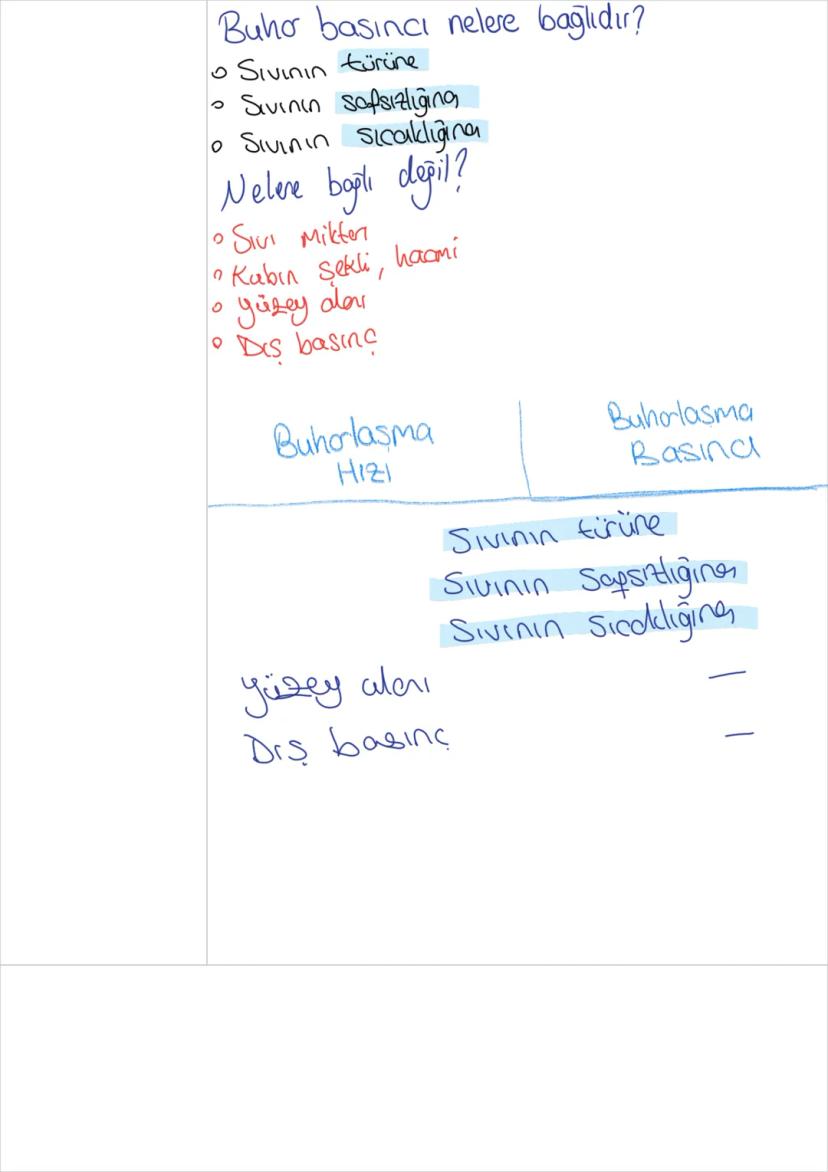 Buhar basıncı nelere bağlıdır?
o Sıvının türüne
o Sıvının safsızlığına
o Sıvının sıcaklığına
Nelere bağlı değil?
o Sıvı Miktarı
o Kabın şekli, hacmi
o yüzey alanı
o Dış basınç
Buharlaşma Hızı
Buharlaşma Basıncı
Sıvının türüne
Sıvının Safsızlığına
Sıvının Sıcaklığına
yüzey alanı —
Dış basınç —